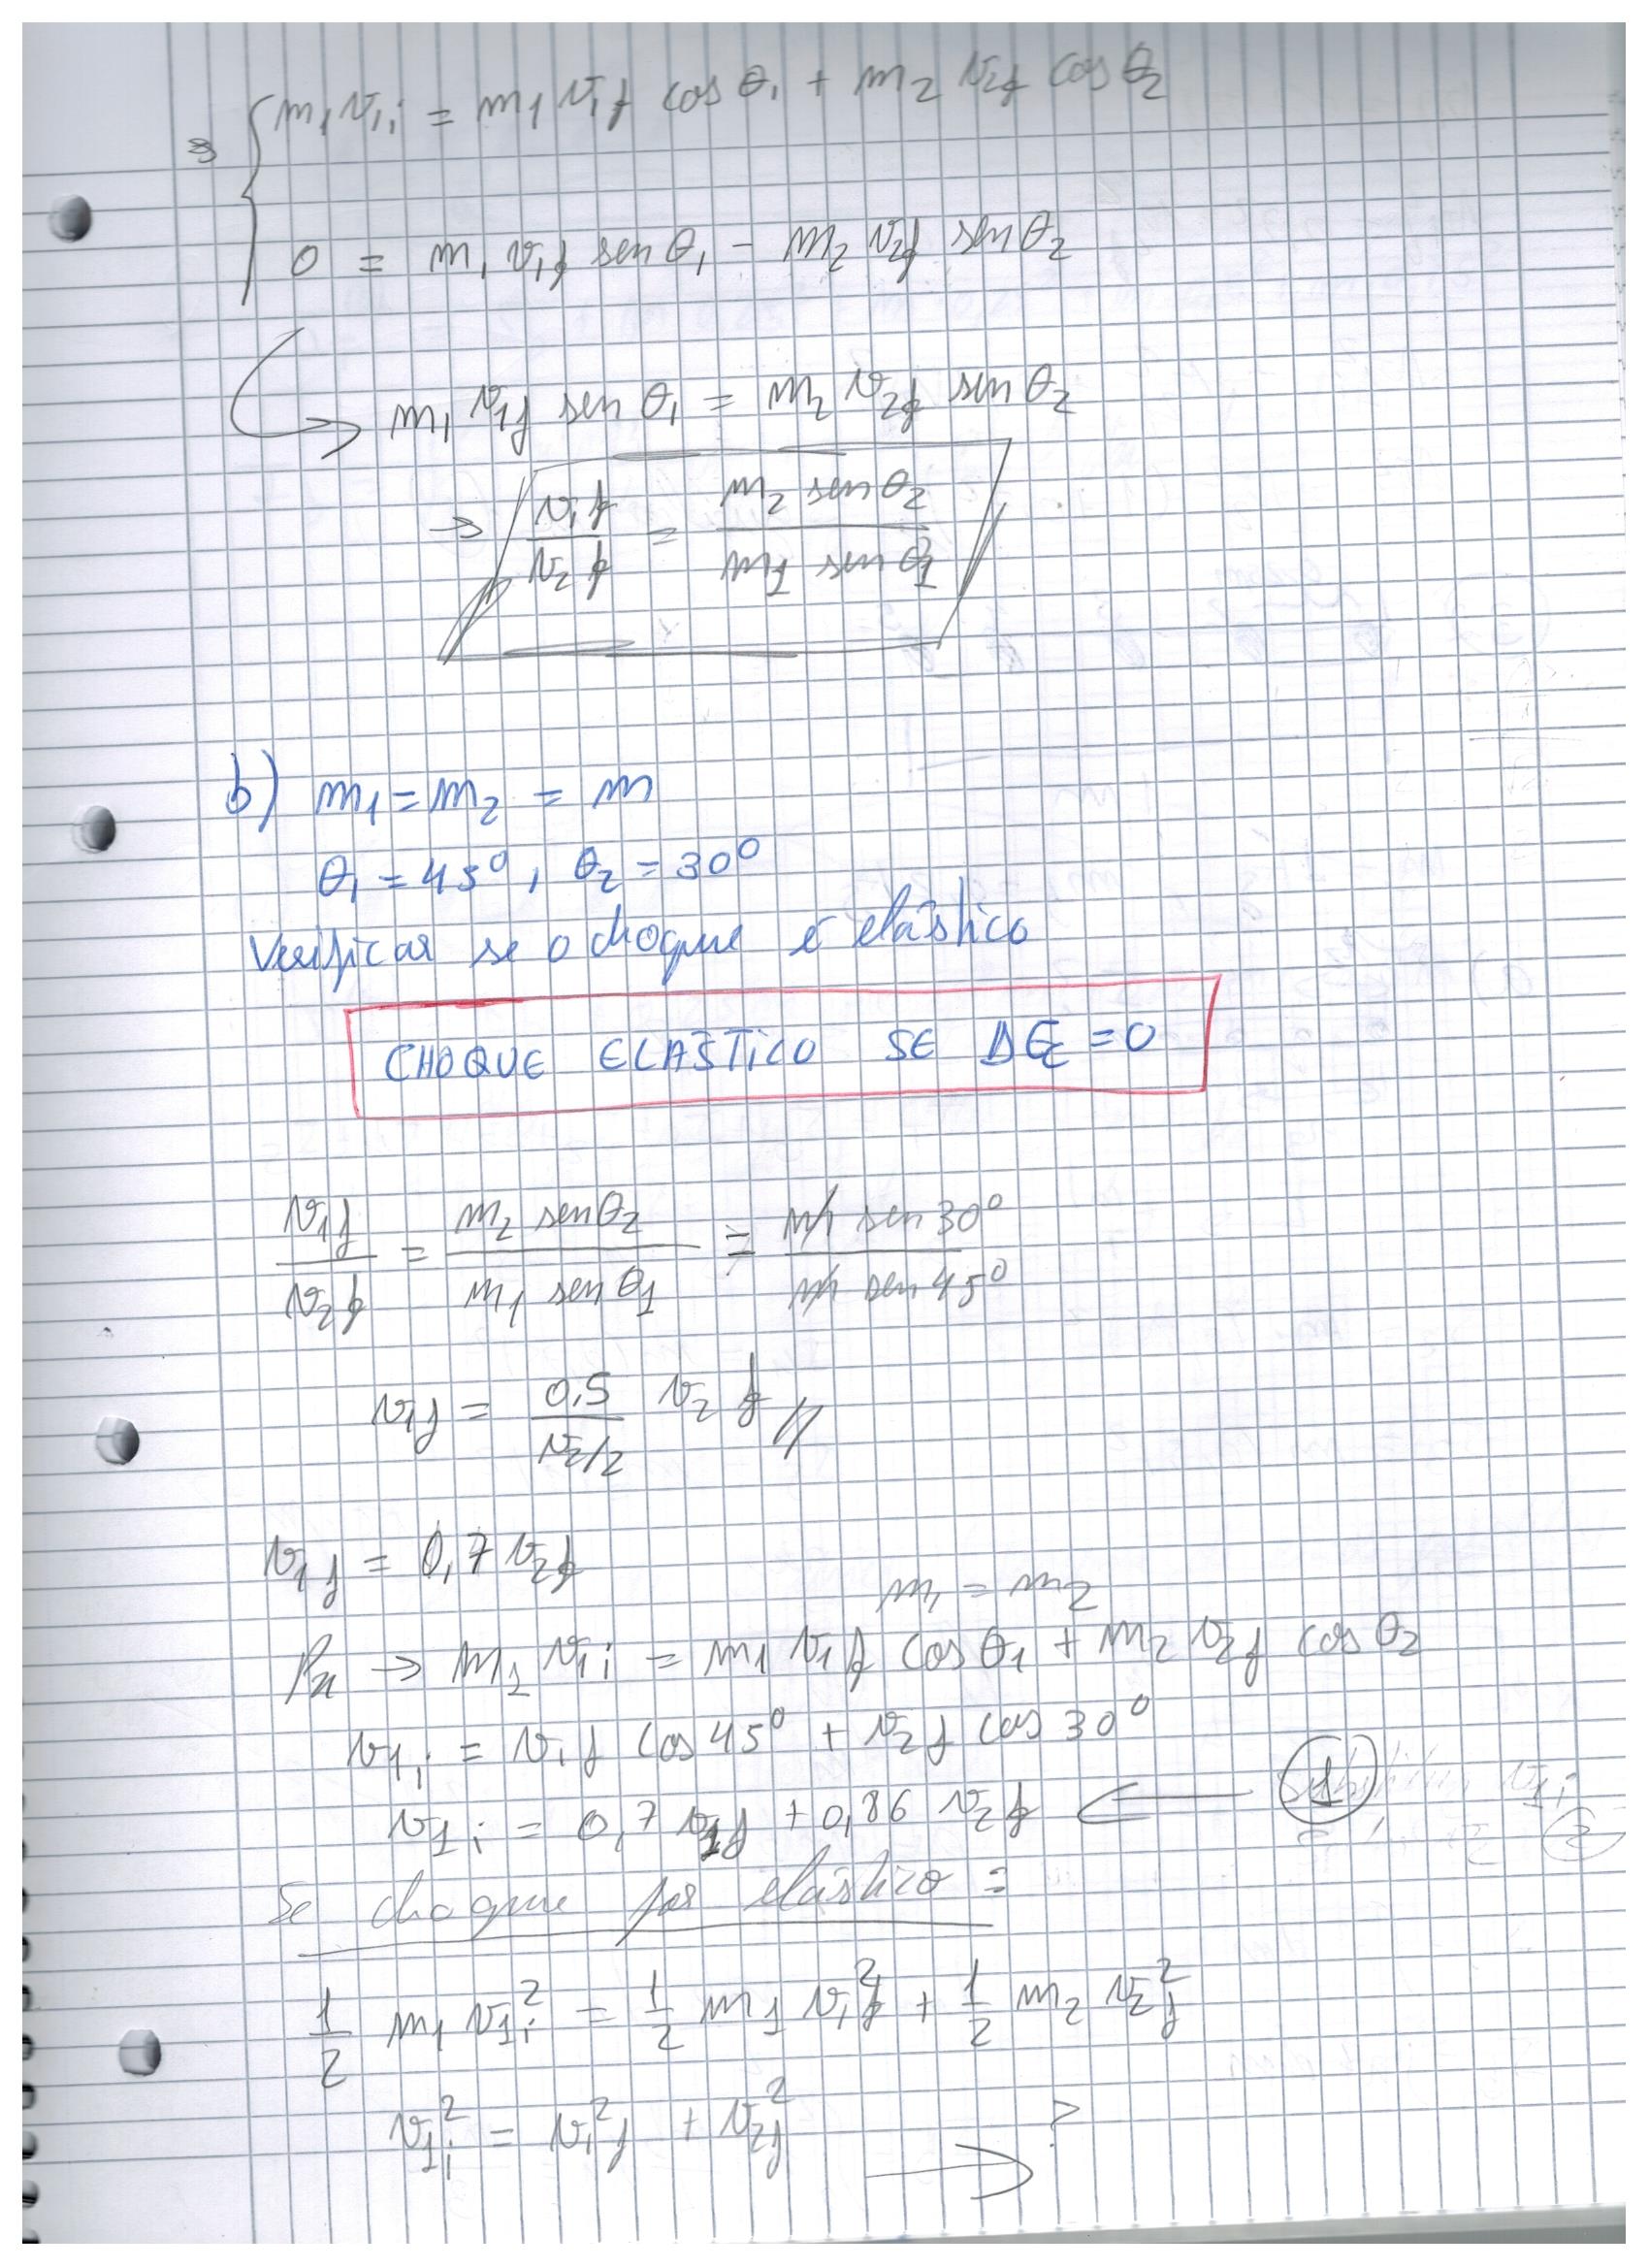 ⇒ { m₁ v₁ᵢ = m₁ v₁f cos θ₁ + m₂ v₂f cos θ₂
0 = m₁ v₁f sen θ₁ - m₂ v₂f sen θ₂
→ m₁ v₁f sen θ₁ = m₂ v₂f sen θ₂
→ v₁f / v₂f = m₂ sen θ₂ / m₁ sen θ₁
b) m₁ = m₂ = m
θ₁ = 45°, θ₂ = 30°
Verificar se o choque é elástico
CHOQUE ELÁSTICO SE ΔEc = 0
v₁f / v₂f = m₂ sen θ₂ / m₁ sen θ₁ = m sen 30° / m sen 45°
v₁f = 0,5 / √2/2 v₂f //
v₁f = 0,7 v₂f
m₁ = m₂
Px → m₁ v₁ᵢ = m₁ v₁f cos θ₁ + m₂ v₂f cos θ₂
v₁ᵢ = v₁f cos 45° + v₂f cos 30°
v₁ᵢ = 0,7 v₁f + 0,86 v₂f ← ①
Se choque for elástico :
1/2 m₁ v₁ᵢ² = 1/2 m₁ v₁f² + 1/2 m₂ v₂f²
v₁ᵢ² = v₁f² + v₂f² → ?